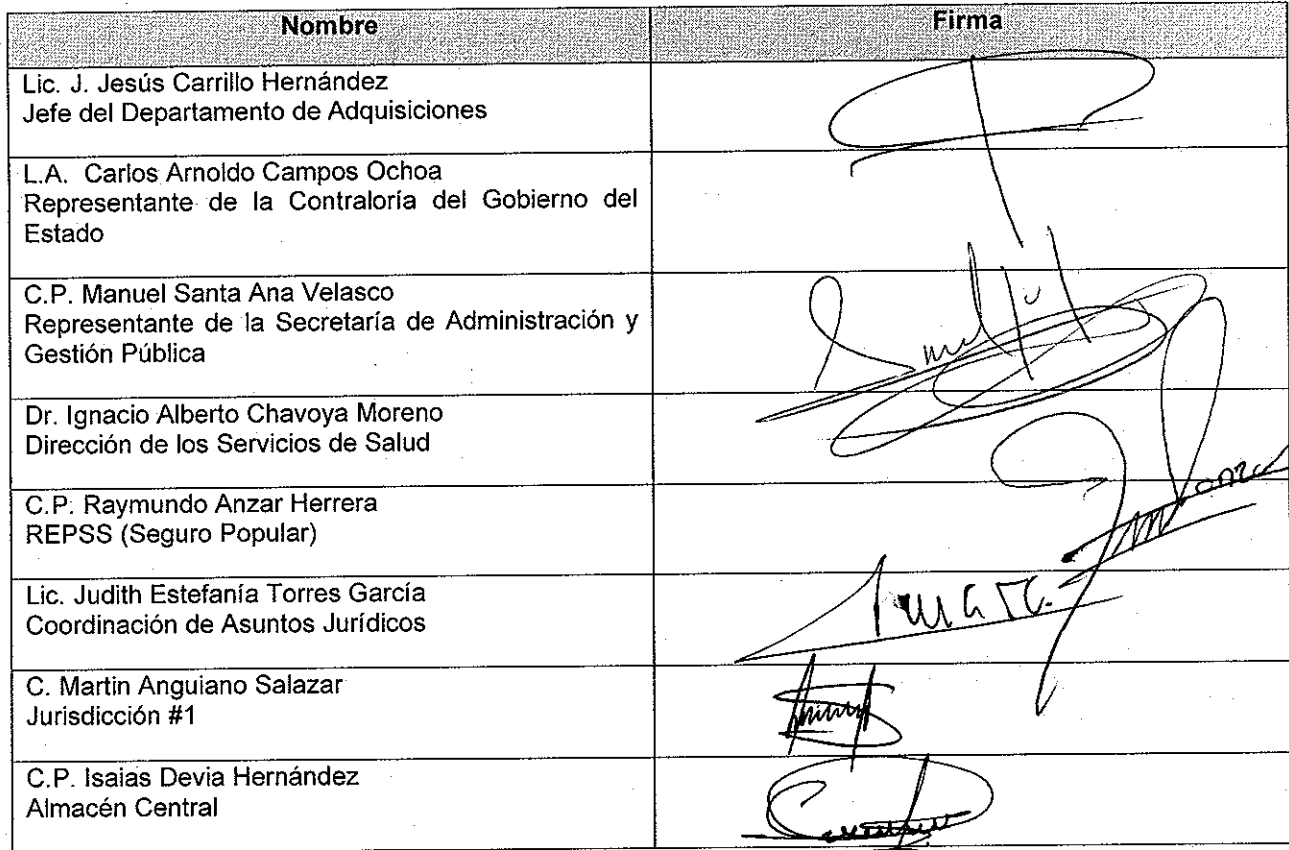 Nombre Firma
Lic. J. Jesús Carrillo Hernández
Jefe del Departamento de Adquisiciones
L.A. Carlos Arnoldo Campos Ochoa
Representante de la Contraloría del Gobierno del
Estado
C.P. Manuel Santa Ana Velasco
Representante de la Secretaría de Administración y
Gestión Pública
Dr. Ignacio Alberto Chavoya Moreno
Dirección de los Servicios de Salud
C.P. Raymundo Anzar Herrera
REPSS (Seguro Popular)
Lic. Judith Estefanía Torres García
Coordinación de Asuntos Jurídicos
C. Martin Anguiano Salazar
Jurisdicción #1
C.P. Isaias Devia Hernández
Almacén Central